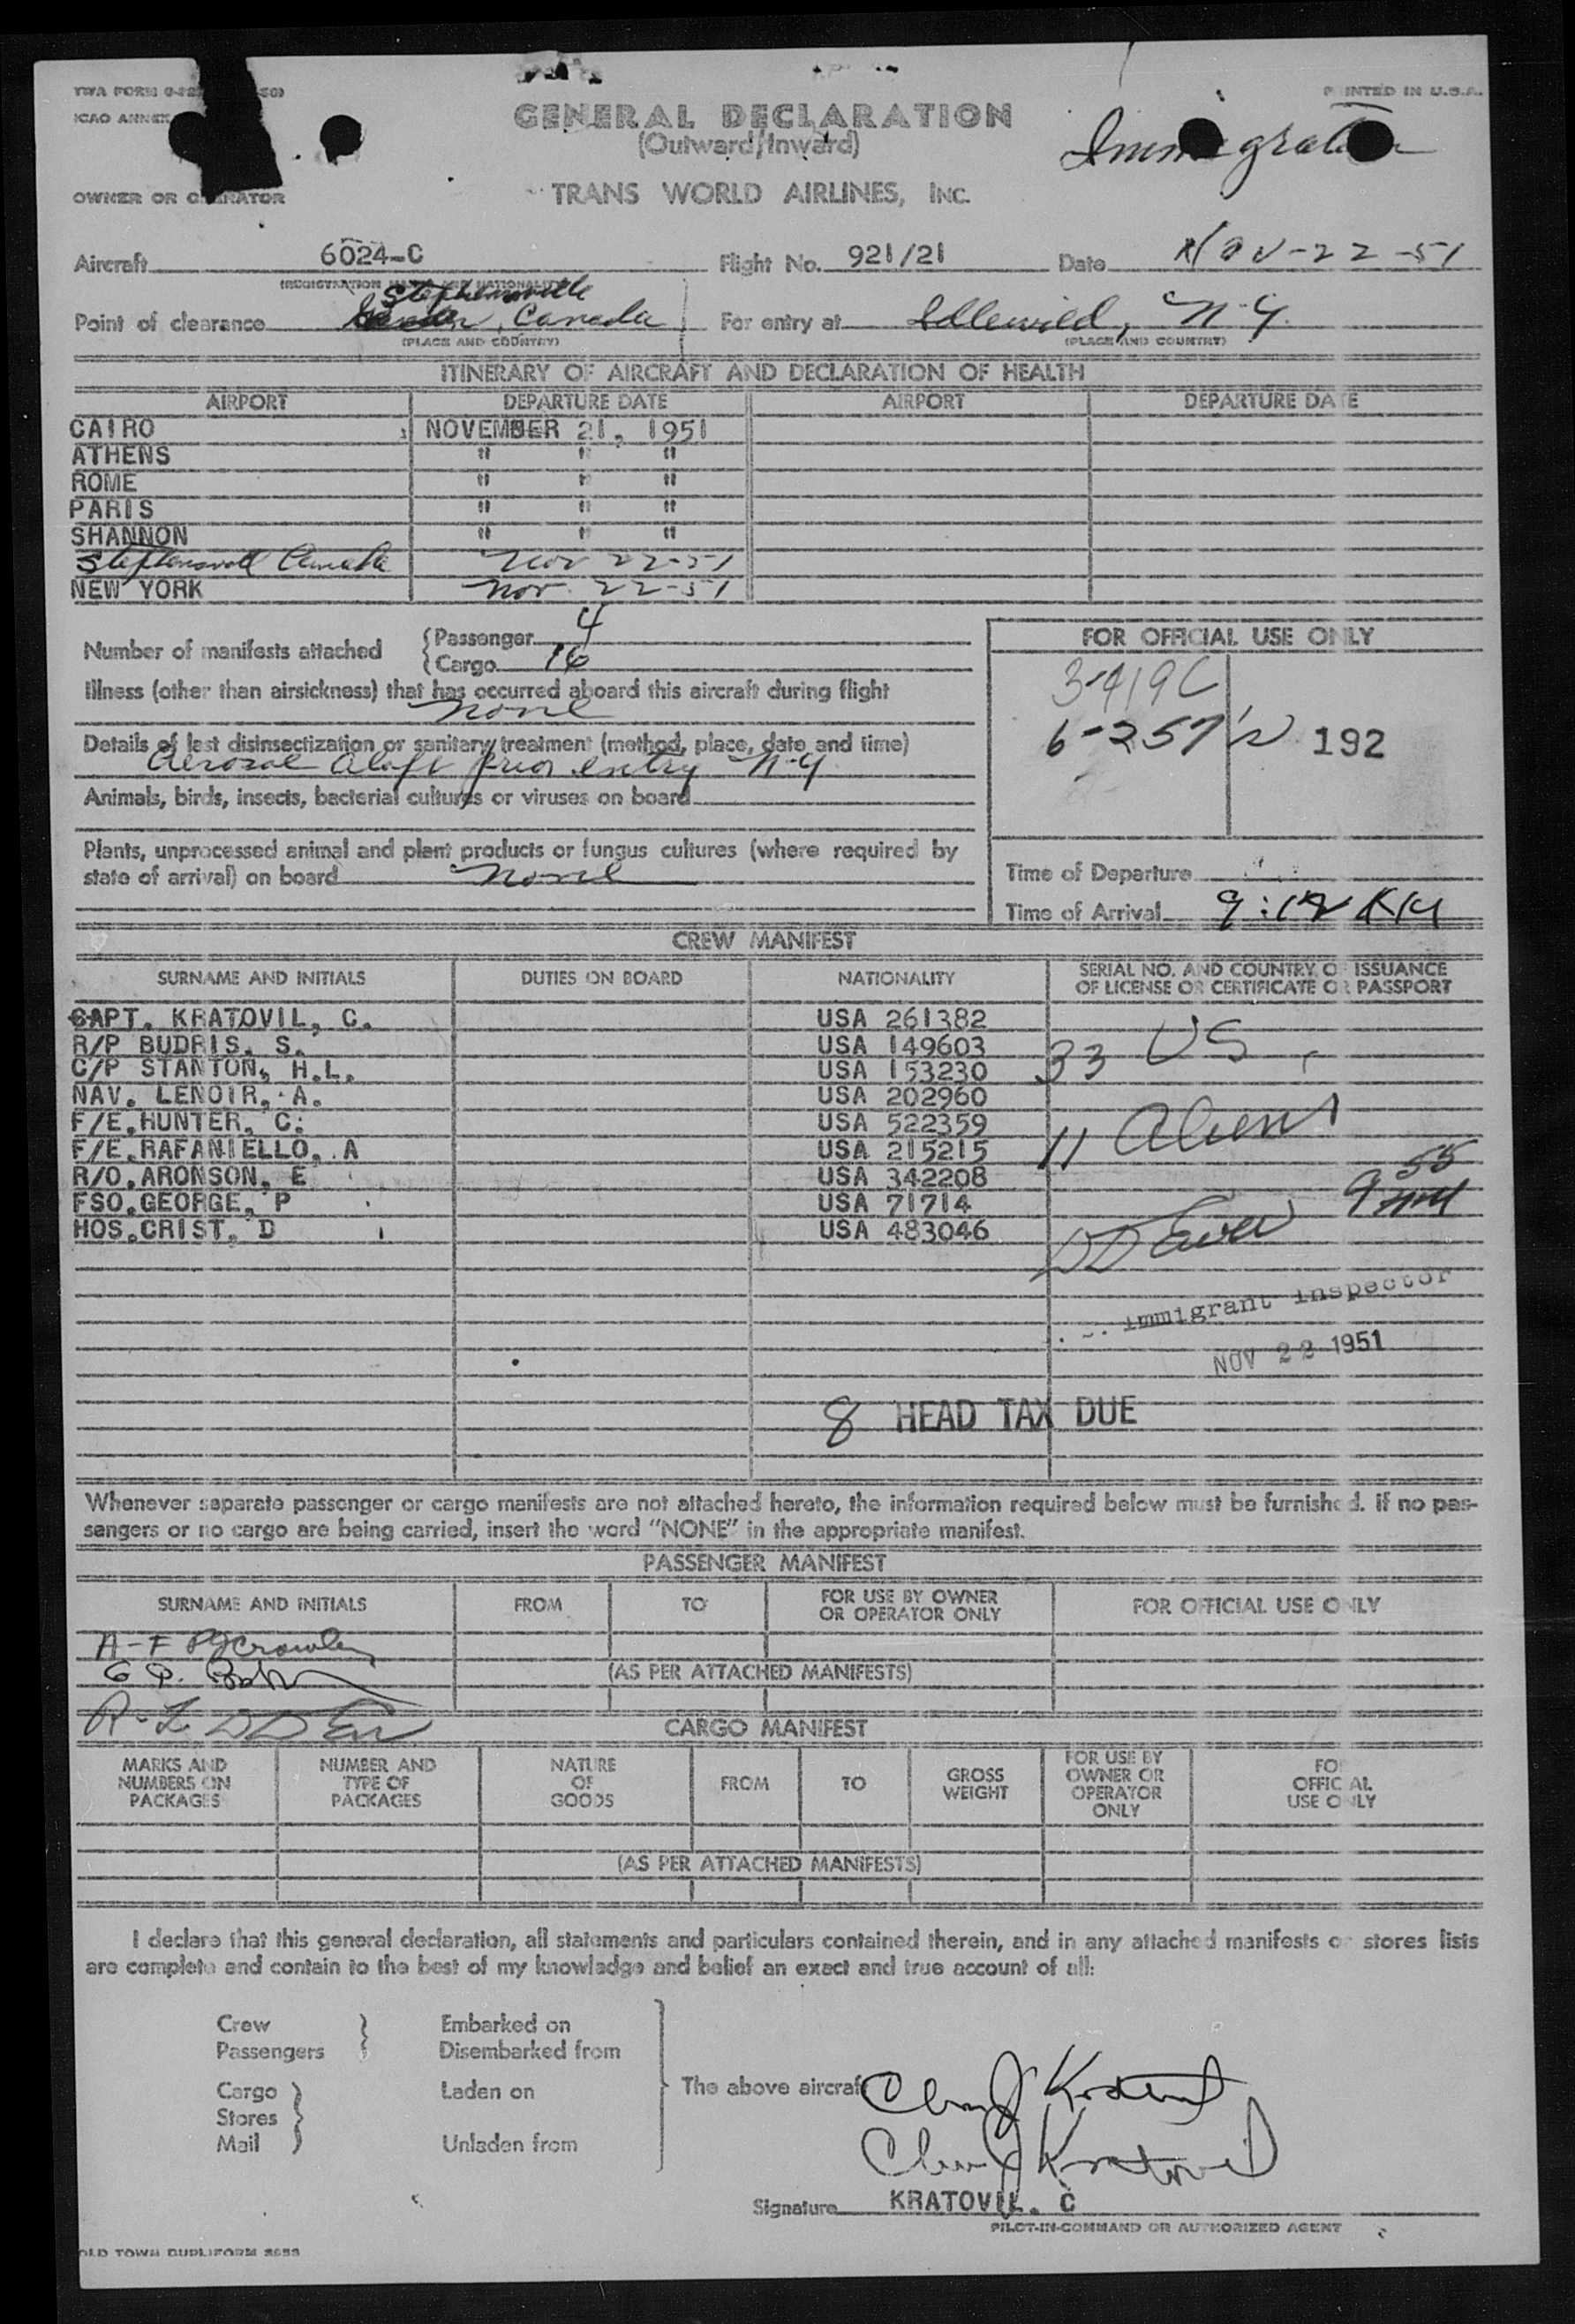 PRINTED IN U.S.A.
ICAO ANNEX
GENERAL DECLARATION
(Outward/Inward)
Immigration
OWNER OR OPERATOR
TRANS WORLD AIRLINES, INC.
Aircraft 6024-C Flight No. 921/21 Date Nov-22-51
Stephenville
Point of clearance Gander, Canada For entry at Idlewild, N.Y.
(PLACE AND COUNTRY) (PLACE AND COUNTRY)
ITINERARY OF AIRCRAFT AND DECLARATION OF HEALTH
AIRPORT DEPARTURE DATE AIRPORT DEPARTURE DATE
CAIRO NOVEMBER 21, 1951
ATHENS " " "
ROME " " "
PARIS " " "
SHANNON " " "
Stephenville Canada Nov 22-51
NEW YORK Nov. 22-51
Number of manifests attached
Passenger 4
Cargo 16
Illness (other than airsickness) that has occurred aboard this aircraft during flight
None
Details of last disinsectization or sanitary treatment (method, place, date and time)
Aerosol aloft prior entry N.Y.
Animals, birds, insects, bacterial cultures or viruses on board
Plants, unprocessed animal and plant products or fungus cultures (where required by
state of arrival) on board None
FOR OFFICIAL USE ONLY
3-419C
6-257 192
Time of Departure
Time of Arrival 9:12
CREW MANIFEST
SURNAME AND INITIALS DUTIES ON BOARD NATIONALITY SERIAL NO. AND COUNTRY OF ISSUANCE
OF LICENSE OR CERTIFICATE OR PASSPORT
CAPT. KRATOVIL, C. USA 261382
R/P BUDRIS, S. USA 149603
33 US
C/P STANTON, H.L. USA 153230
NAV. LENOIR, A. USA 202960
F/E.HUNTER, C. USA 522359
11 Aliens
F/E.RAFANIELLO, A USA 215215
R/O.ARONSON, E USA 342208
FSO.GEORGE, P USA 71714
9 55
HOS.CRIST, D USA 483046
Immigrant Inspector
NOV 22 1951
8 HEAD TAX DUE
Whenever separate passenger or cargo manifests are not attached hereto, the information required below must be furnished. If no pas-
sengers or no cargo are being carried, insert the word "NONE" in the appropriate manifest.
PASSENGER MANIFEST
SURNAME AND INITIALS FROM TO FOR USE BY OWNER
OR OPERATOR ONLY FOR OFFICIAL USE ONLY
(AS PER ATTACHED MANIFESTS)
CARGO MANIFEST
MARKS AND
NUMBERS ON
PACKAGES
NUMBER AND
TYPE OF
PACKAGES
NATURE
OF
GOODS
FROM
TO
GROSS
WEIGHT
FOR USE BY
OWNER OR
OPERATOR
ONLY
FOR
OFFICIAL
USE ONLY
(AS PER ATTACHED MANIFESTS)
I declare that this general declaration, all statements and particulars contained therein, and in any attached manifests or stores lists
are complete and contain to the best of my knowledge and belief an exact and true account of all:
Crew Embarked on
Passengers Disembarked from
Cargo Laden on
Stores
Mail Unladen from
The above aircraft
Chas J Kratovil
Chas J Kratovil
Signature KRATOVIL, C
PILOT-IN-COMMAND OR AUTHORIZED AGENT
OLD TOWN DUPLIFORM